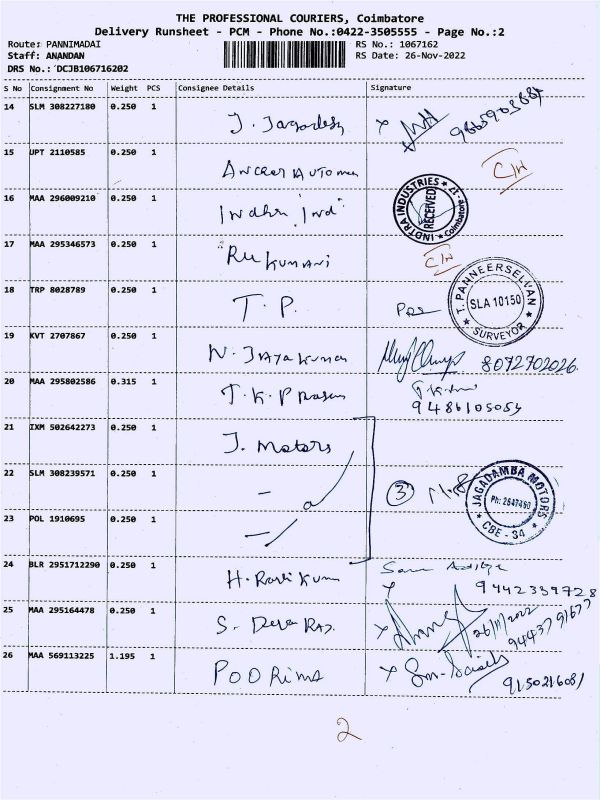 THE PROFESSIONAL COURIERS, Coimbatore
Delivery Runsheet - PCM - Phone No.:0422-3505555 - Page No.:2
Route: PANNIMADAI
RS No.: 1067162
Staff: ANANDAN
RS Date: 26-Nov-2022
DRS No.: DCJB106716202
S No Consignment No Weight PCS Consignee Details Signature
14 SLM 308227180 0.250 1 J. Jagadesh
15 UPT 2110585 0.250 1
16 MAA 296009210 0.250 1 Indhra Ind
INDTRA INDUSTRIES RECEIVED Coimbatore-17
17 MAA 295346573 0.250 1 Rukumani
18 TRP 8028789 0.250 1 T. P.
T. PANNEERSELVAN SLA 10150 SURVEYOR
19 KVT 2707867 0.250 1 N. Jayakumar 8072702026
20 MAA 295802586 0.315 1 T. K. Prasan
9486105054
21 IXM 502642273 0.250 1 J. Motors
22 SLM 308239571 0.250 1 3
JAGADAMBA MOTORS CBE - 34
23 POL 1910695 0.250 1
24 BLR 2951712290 0.250 1 H. Ravi Kumar
9442339728
25 MAA 295164478 0.250 1 S. Deva Raj. 26/11/2022
9443791677
26 MAA 569113225 1.195 1 POORima
9150216081
2